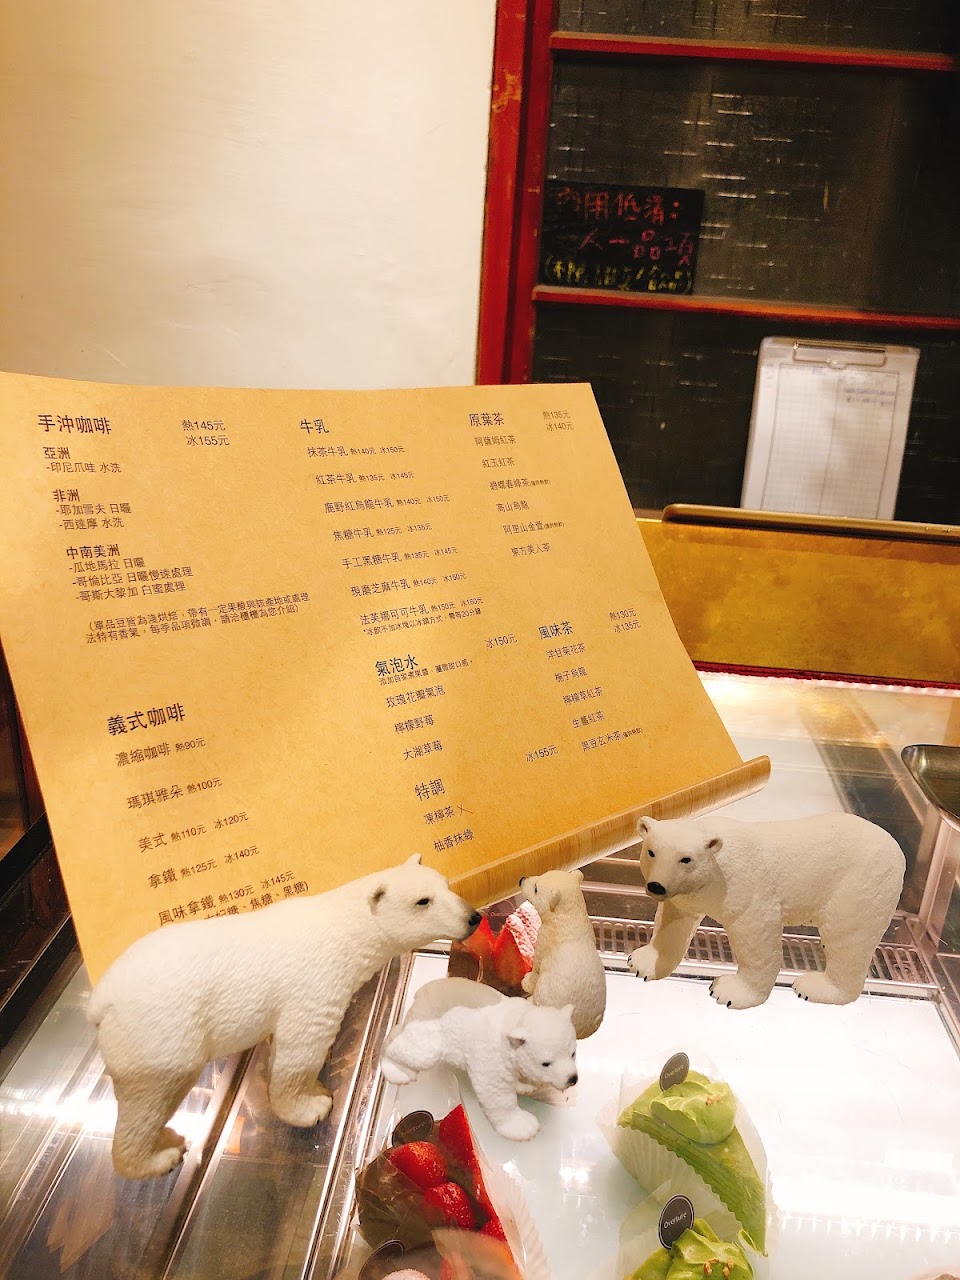 內用低消：
一人一品項
手沖咖啡 熱145元
冰155元
亞洲
-印尼爪哇 水洗
非洲
-耶加雪夫 日曬
-西達摩 水洗
中南美洲
-瓜地馬拉 日曬
-哥倫比亞 日曬慢速處理
-哥斯大黎加 白蜜處理
(單品豆皆為淺烘焙，帶有一定果酸與該產地或處理
法特有香氣，每季品項微調，請洽櫃檯為您介紹)
義式咖啡
濃縮咖啡 熱90元
瑪琪雅朵 熱100元
美式 熱110元 冰120元
拿鐵 熱125元 冰140元
風味拿鐵 熱130元 冰145元
焦糖、黑糖)
牛乳
抹茶牛乳 熱140元 冰150元
紅茶牛乳 熱135元 冰145元
鹿野紅烏龍牛乳 熱140元 冰150元
焦糖牛乳 熱125元 冰135元
手工黑糖牛乳 熱135元 冰145元
現磨芝麻牛乳 熱140元 冰150元
法芙娜可可牛乳 熱150元 冰160元
*冰飲不加冰塊以冰鎮方式，需等20分鐘
氣泡水 冰150元
添加自家煮果醬，
玫瑰花瓣氣泡
檸檬野莓
大湖草莓
特調 冰155元
凍檸茶
柚香抹綠
原葉茶 熱135元
冰140元
阿薩姆紅茶
紅玉紅茶
碧螺春綠茶(僅供熱飲)
高山烏龍
阿里山金萱(僅供熱飲)
東方美人茶
風味茶 熱130元
冰135元
洋甘菊花茶
梔子烏龍
檸檬草紅茶
生薑紅茶
黑豆玄米茶(僅供熱飲)
Overture
Overture